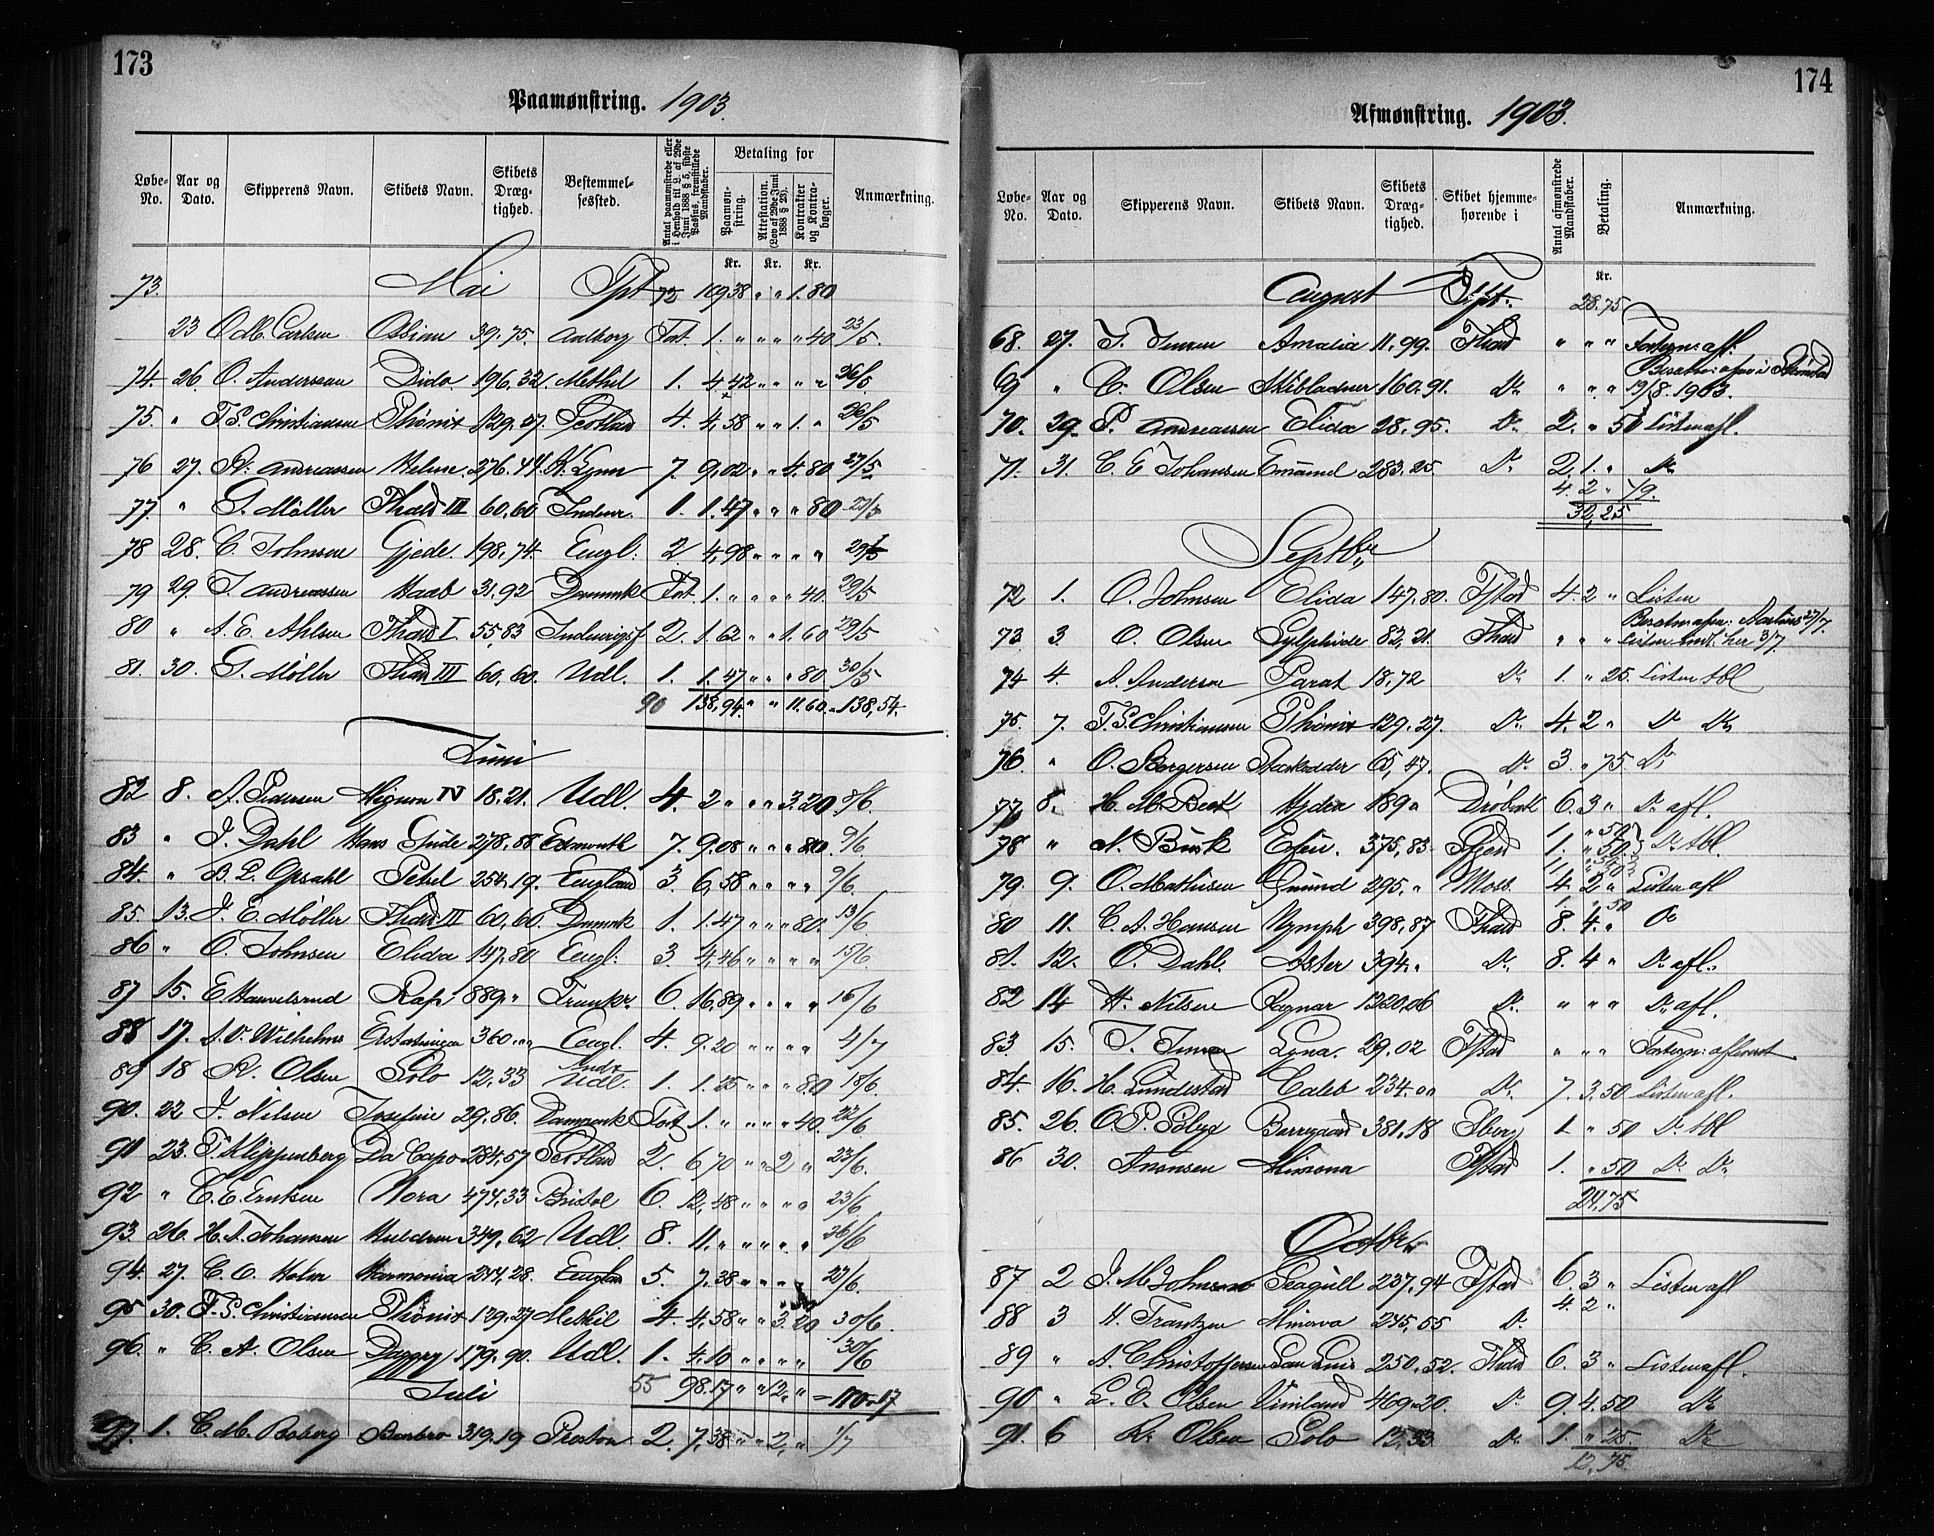 173
Paamønstring. 1903.
Løbe-No. Aar og Dato. Skipperens Navn. Skibets Navn. Skibets Dræg-tighed. Bestemmel-sessted. Antal paamønstrede eller i Henhold til L. af 29de Juni 1888 § 5, sidste Passus, fremstillede Mandskaber. Betaling for Paamøn-string. Attestation. (Lov af 29de Juni 1888 § 28). Kontrakter og Kontra-bøger. Anmærkning.
Kr. Kr. Kr.
73. Mai Tpt 72 109,38 " " 1.80
23 O. M. Carlsen Ossian 39.75. Aalborg Fort 1. " " " " 40 23/5.
74. 26 O. Andersen Dido 196.32 Methil 1. 4 42 " " " " 26/5
75. " F. S. Christiansen Phønix 129.27 Scotland 4. 4,58 " " 1. " 26/5
76 27. Andreassen Helene 276.44 K. Lynn 7. 9,02 " " 4.80 27/5
77. " G. Møller Thald III 60,60 1. 1.47 " " " 80 27/5
78 28. C. Johnsen Gjede. 198.74 Engl. 2 4,98 " " " " 29/5
79 29. J. Andreassen Haab 31.92 Danmark Fort 1. " " " " 40. 29/5
80 " A. E. Ahlsen Thald I 55,83 2. 1.62 " " 1.60 29/5
81. 30. G. Møller Thald III 60,60. Udl. 1. 1.47 " " " 80. 30/5
90 138,94. " " 11.60 - 138,54.
Juni
82 8. A. Pedersen Mignon IV 18.21. Udl. 4. 2 " " " 3.20 8/6.
83 " J. Dahl Hans Gude 278,88 7. 9.08 " " " 80. 9/6
84. " B. L. Opsahl Petrel 254.19. England 3. 6,58 " " " " 9/6.
85. 13. J. E. Møller Thald III 60,60. Danmark 1. 1.47 " " " 80. 13/6.
86 " O. Johnsen Elida 147,80 Engl. 3. 4,46 " " " " 15/6
87 15. E. Hauvelsrud Rap 889 " Frankr. 6. 16,89 " " " " 16/6
88 17. A. O. Wilhelms 360 " " Engl. 4. 9.20 " " " " 4/7
89 18 R. Olsen Solo 12,33 Udl. 1. 1.25 " " " 80 18/6.
90. 22 J. Nilsen Josefine 29.86. Danmark Fort 1. " " " " 40. 22/6.
91 23. F. Klippenberg Da Capo 284,57 Scotland 2. 6,70 " " 2 " 23/6.
92 " C. E. Eriksen Nora 474,33 Bristol 6. 12,48 " " " " 23/6
93. 26. H. A. Johansen Huldren 349,62 Udl. 8. 11. " " " " " 26/6
94. 27. C. O. Holm Harmonia 244,28. England 5. 7.38 " " " " 27/6.
95 30. F. S. Christiansen Phønix 129.27 Methil 4 4,58 " " 3.20 30/6.
96. " C. A. Olsen Daggry 179.90. Udl. 1. 4,10 " " " " 30/6
Juli 55 98.17 " " 12, " - 110.17
97. 1. C. M. Boberg Banbro 319.19 Preston 2. 7,38 " " 2, " 1/7
174
Afmønstring. 1903.
Løbe-No. Aar og Dato. Skipperens Navn. Skibets Navn. Skibets Dræg-tighed. Skibet hjemme-hørende i Antal afmønstrede Mandskaber. Betaling. Anmærkning.
Kr.
August 28.75
68. 27. J. Jensen Amalia 11.99. Thald " " " Fortegn. afl.
69 " C. Olsen Skibladner 160.91. Do " " " 19/8 1903.
70. 29. P. Andreassen Elida 28.95. Do 2. " 50 Listen afl.
71. 31. C. E. Johansen Emanuel 283.25 Do 2. 1. " Do
4. 2 "
32,25
Septbr.
72 1. O. Johnsen Elida 147.80. Fstad 4. 2 " Listen
73 3. O. Olsen Sylphide 82,21. Thald " " " 27/7. Listen her 3/7
74 4. A. Andersen Parat 18,72 Do 1. " 25. Listen tbl
75. 7. F. S. Christiansen Phønix 129.27. Do 4. 2 " Do Do
76. " O. Borgersen Starkodder 65,47. Do 3. " 75. Do
77 8. H. M. Beck Hydra 189 " Drøbak 6. 3 " Do afl.
1. " 50
78 " N. Bursk 375,83. 1. " 50 Do tbl.
79. 9. O. Mathisen Gmünd 295. " Moss 4. 2 " Listen afl
1. " 50
80 11. C. A. Hansen Nymph 398,87 Thald 8. 4. " Do
81. 12. O. Dahl. Aster 394. " Do 8. 4 " Do afl.
82 14 H. Nilsen Ragnar 1220,06 Do " " " Do afl.
83 15. J. Jensen Lyna. 29.02 Fstad " " " Fortegn. afleveret
84. 16. H. Lundestad Caleb 234. " Do 7. 3.50 Listen afl.
85. 26. O. P. Solby Borregaard 381,18 1 " 50 Do tbl
86 30. Aronsen Mimona Fstad 1. " 50 Do Do
24,75
Octbr.
87 2 J. M. Johnsen Seagull 237.94 Fstad 6. 3 " Listen afl
4. 2 "
88 3 H. Frantzen Minerva 245,55 Do
89 " A. Christoffersen San Luis 250.52. Thald 6. 3 " Listen afl.
90 " L. E. Olsen Vinland 469.20. Do 9. 4.50 Do
91. 6 R. Olsen Solo 12,33 Do 1. " 25. Do
12,75.